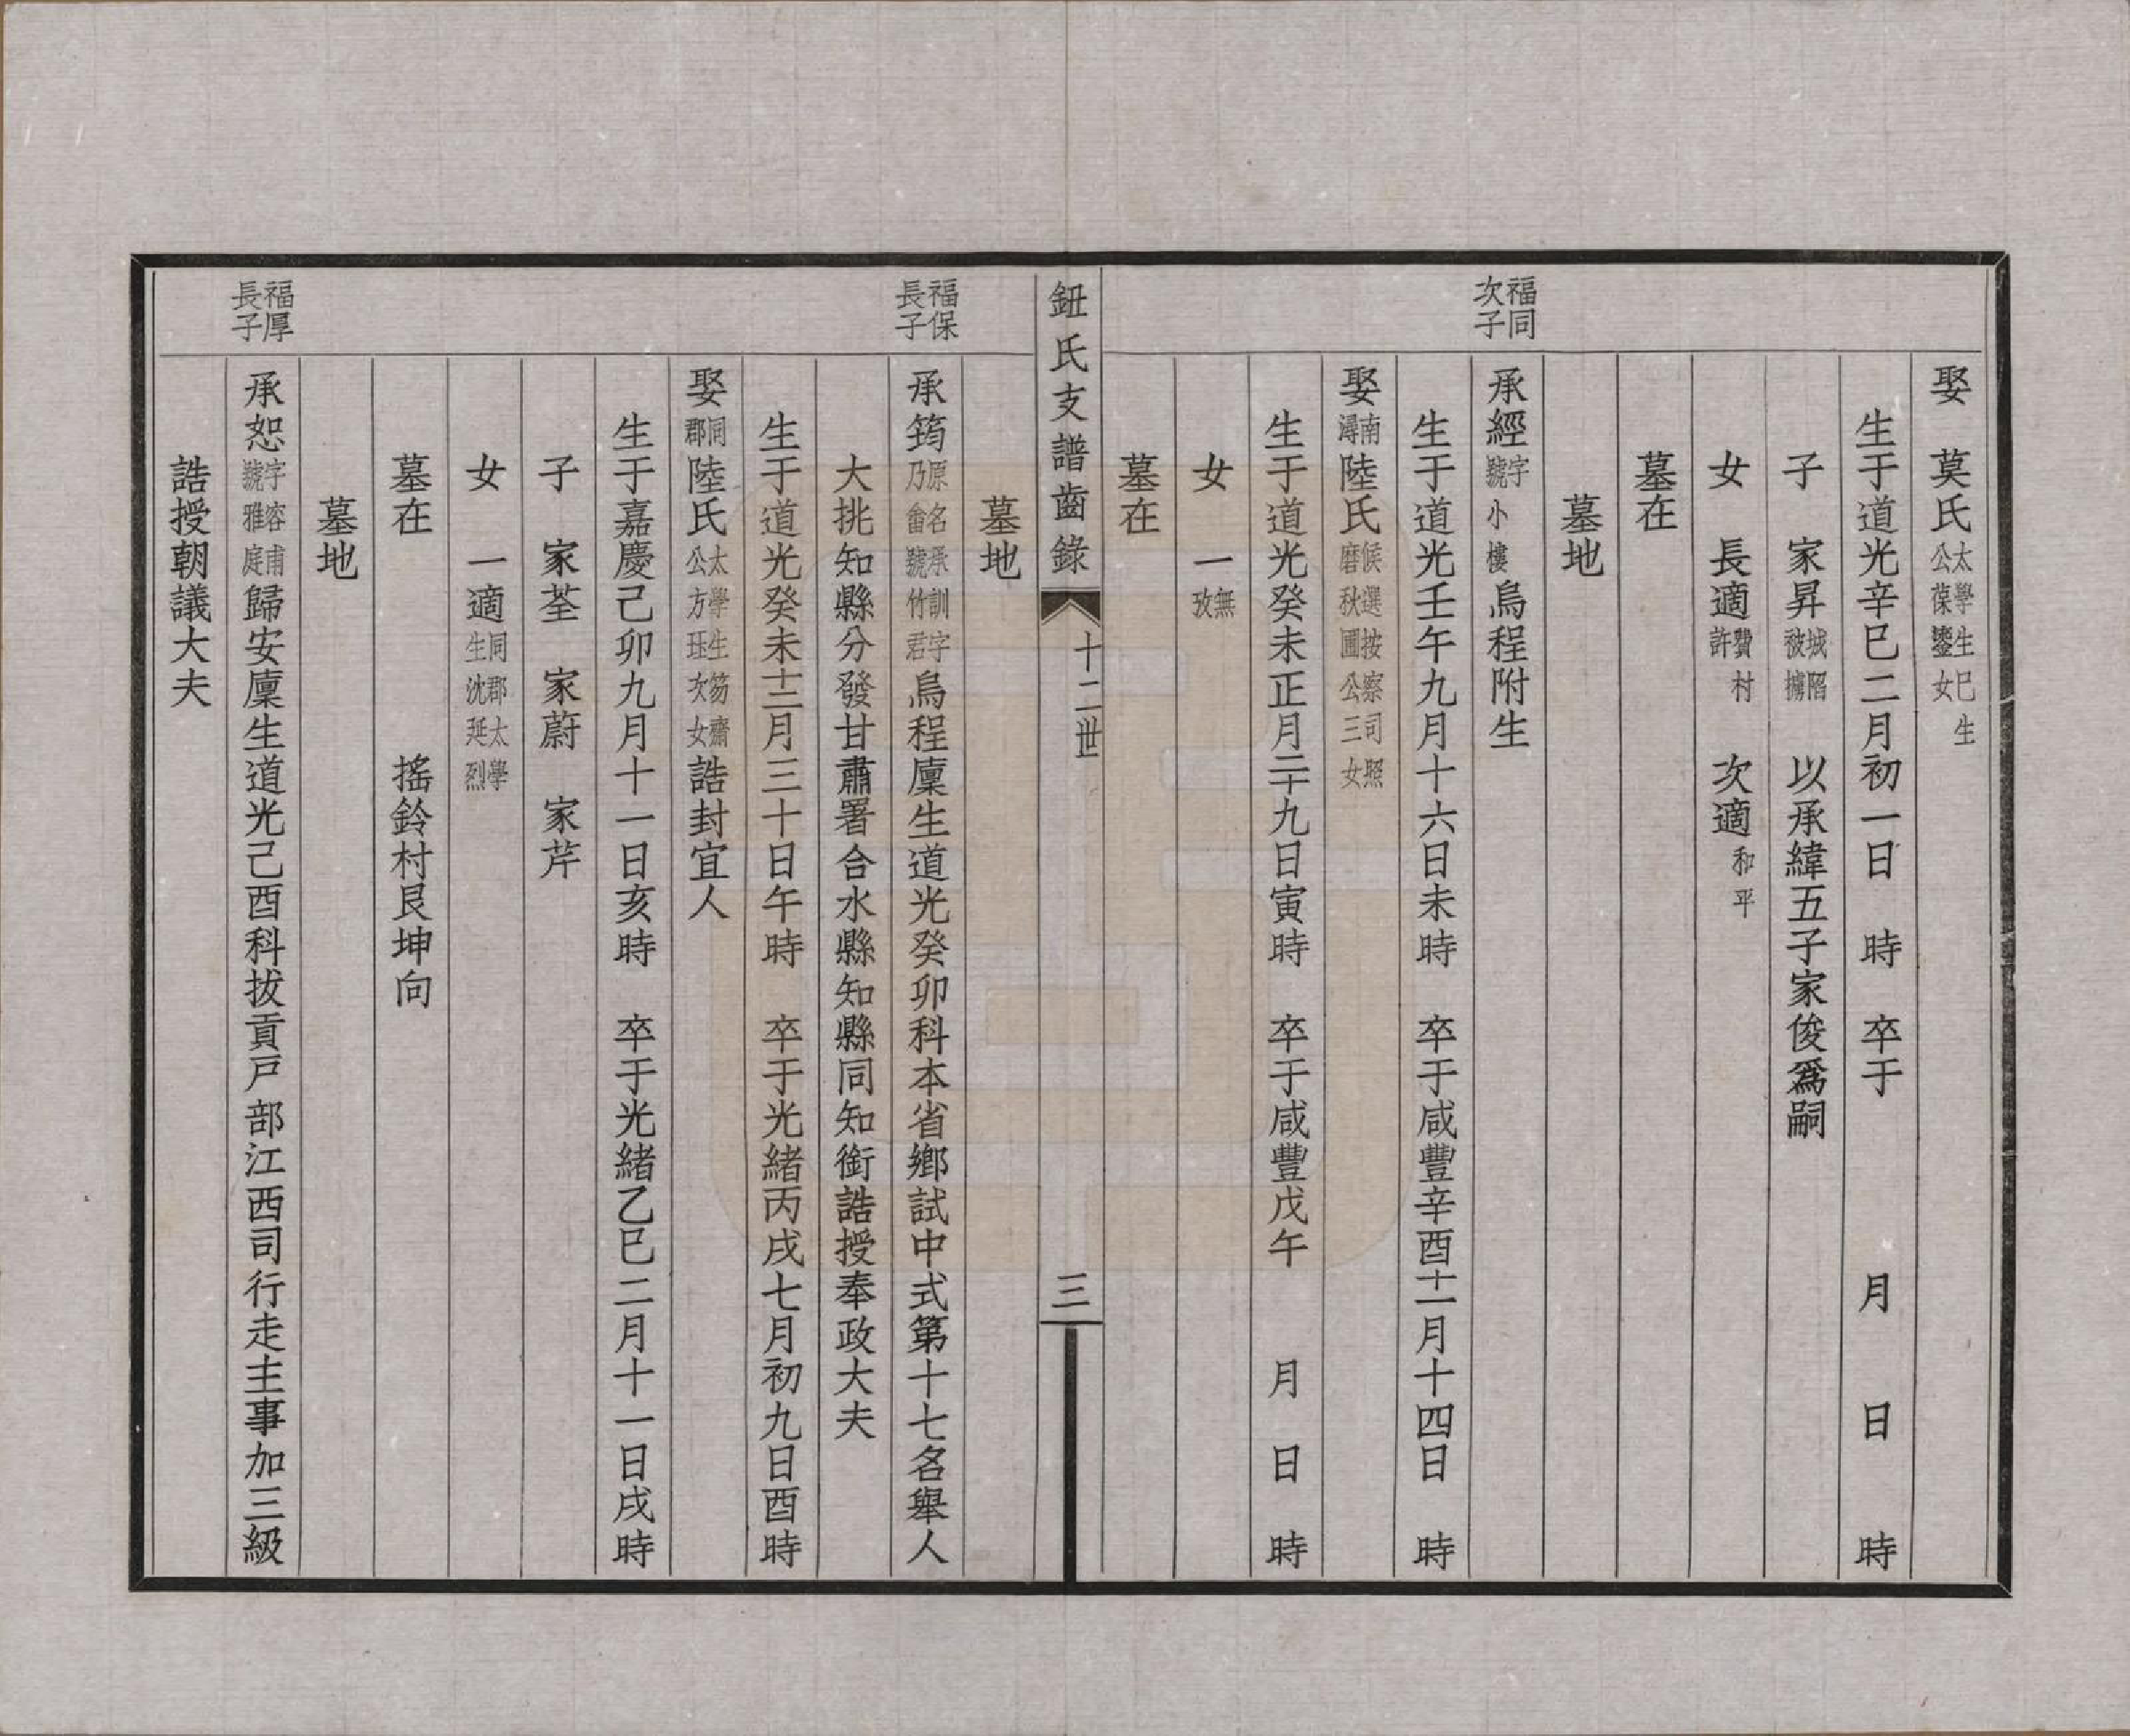 娶　莫氏太學生巳生公葆鎏女
生于道光辛巳二月初一日　時　卒于　　月　日　時
子　家昇城陷被擄　以承緯五子家俊爲嗣
女　長適費村許　次適和平
墓在
墓地
福同次子
承經字號小樓烏程附生
生于道光壬午九月十六日未時　卒于咸豐辛酉十二月十四日　時
娶南潯陸氏候選按察司照磨秋圃公三女
生于道光癸未正月二十九日寅時　卒于咸豐戊午　月　日　時
女　一無攷
墓在
鈕氏支譜齒錄　十二世　三
墓地
福保長子
承筠原名承訓字乃畬號竹君烏程廩生道光癸卯科本省鄉試中式第十七名舉人
大挑知縣分發甘肅署合水縣知縣同知銜誥授奉政大夫
生于道光癸未十二月三十日午時　卒于光緒丙戌七月初九日酉時
娶同郡陸氏太學生笏齋公方珏次女誥封宜人
生于嘉慶己卯九月十一日亥時　卒于光緒乙巳二月十一日戌時
子　家荃　家蔚　家芹
女　一適同郡太學生沈延烈
墓在　　搖鈴村艮坤向
墓地
福厚長子
承恕字容甫號雅庭歸安廩生道光己酉科拔貢戸部江西司行走主事加三級
誥授朝議大夫